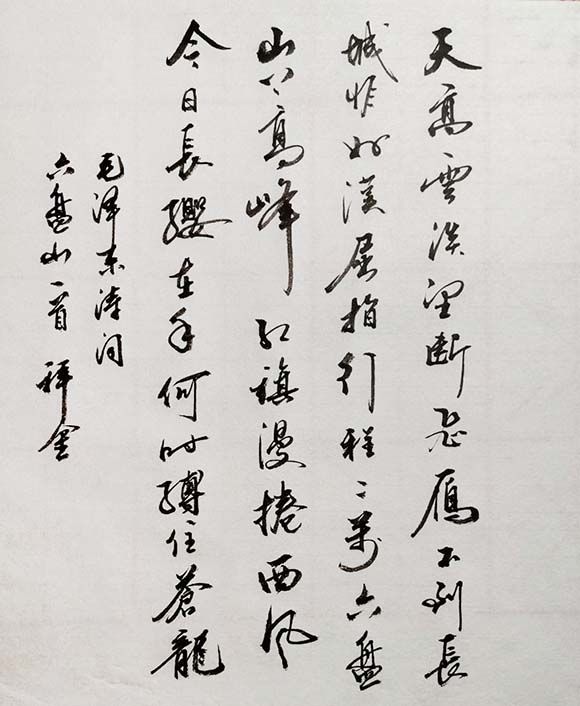 天高雲淡望斷飛雁不到長
城非好漢屈指行程二萬六盤
山上高峰紅旗漫捲西風
今日長纓在手何時縛住蒼龍
毛澤東詩詞
六盤山一首